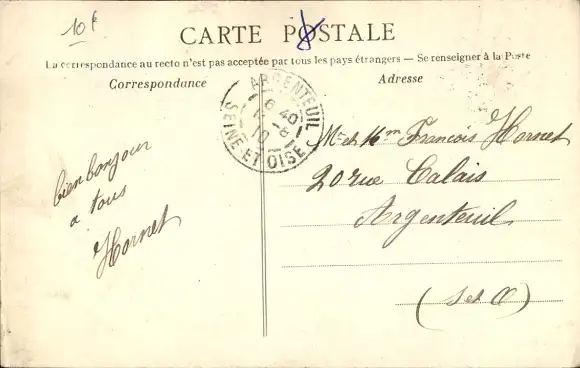 10f
CARTE POSTALE
La correspondance au recto n'est pas acceptée par tous les pays étrangers — Se renseigner à la Poste
Correspondance
Adresse
ARGENTEUIL
6 40
8
10
SEINE ET OISE
bien bonjour
à tous
Hornet
Mr et Mme Francois Hornet
20 rue Calais
Argenteuil
(S et O)